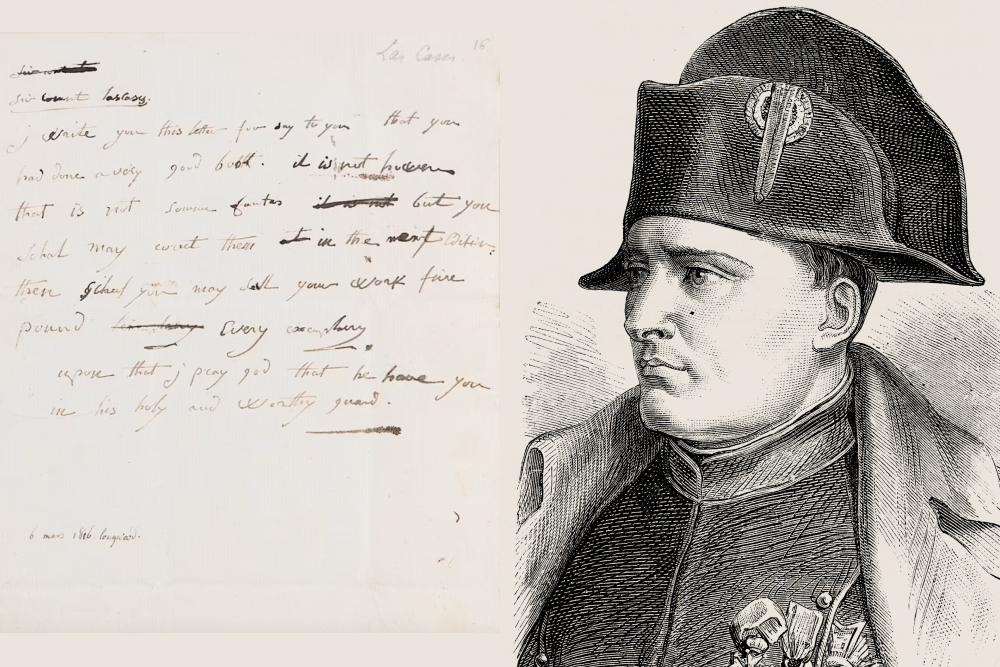 Las Cases. 16
Sir count lascases.
j write you this letter for say to you that you
had done a very good book. it is not however
that is not somme fautes it is not but you
schal may correct them in the next Edition.
then schal you may sell your work five
pound Every exemplary
upon that j pray god that he have you
in his holy and worthy guard.
6 mars 1816. longwood.